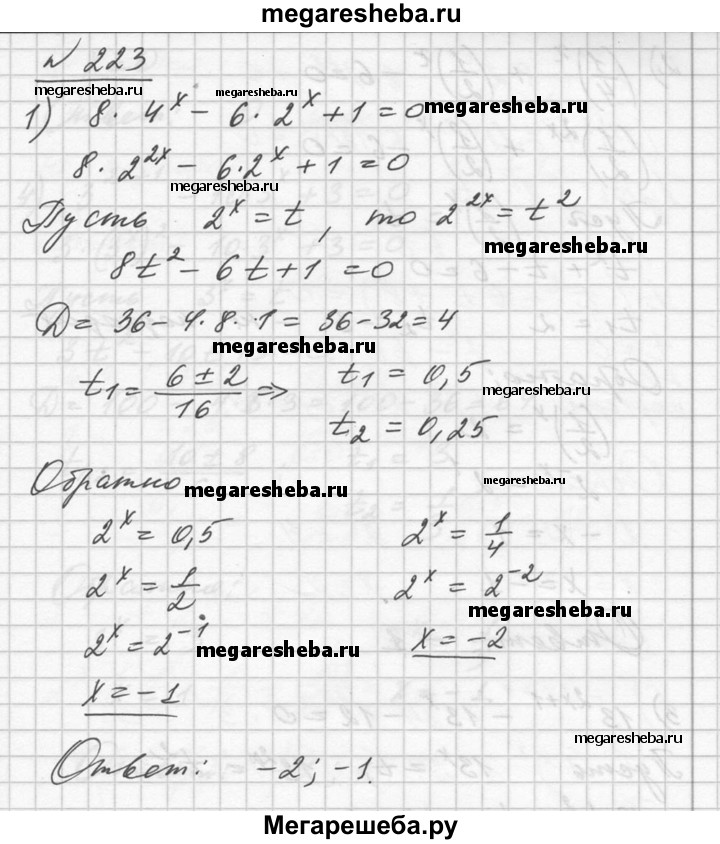 megaresheba.ru
№ 223
megaresheba.ru megaresheba.ru
1) 8 · 4^x − 6 · 2^x + 1 = 0 megaresheba.ru
8 · 2^{2x} − 6 · 2^x + 1 = 0
megaresheba.ru
Пусть 2^x = t, то 2^{2x} = t^2
megaresheba.ru
8t^2 − 6t + 1 = 0
D = 36 − 4 · 8 · 1 = 36 − 32 = 4
megaresheba.ru
t_1 = (6 ± 2)/16 ⇒ t_1 = 0,5
megaresheba.ru
t_2 = 0,25
Обратно megaresheba.ru megaresheba.ru
2^x = 0,5 2^x = 1/4
2^x = 1/2 2^x = 2^{−2}
megaresheba.ru
2^x = 2^{−1} megaresheba.ru x = −2
x = −1
megaresheba.ru
Ответ: −2; −1.
Мегарешеба.ру